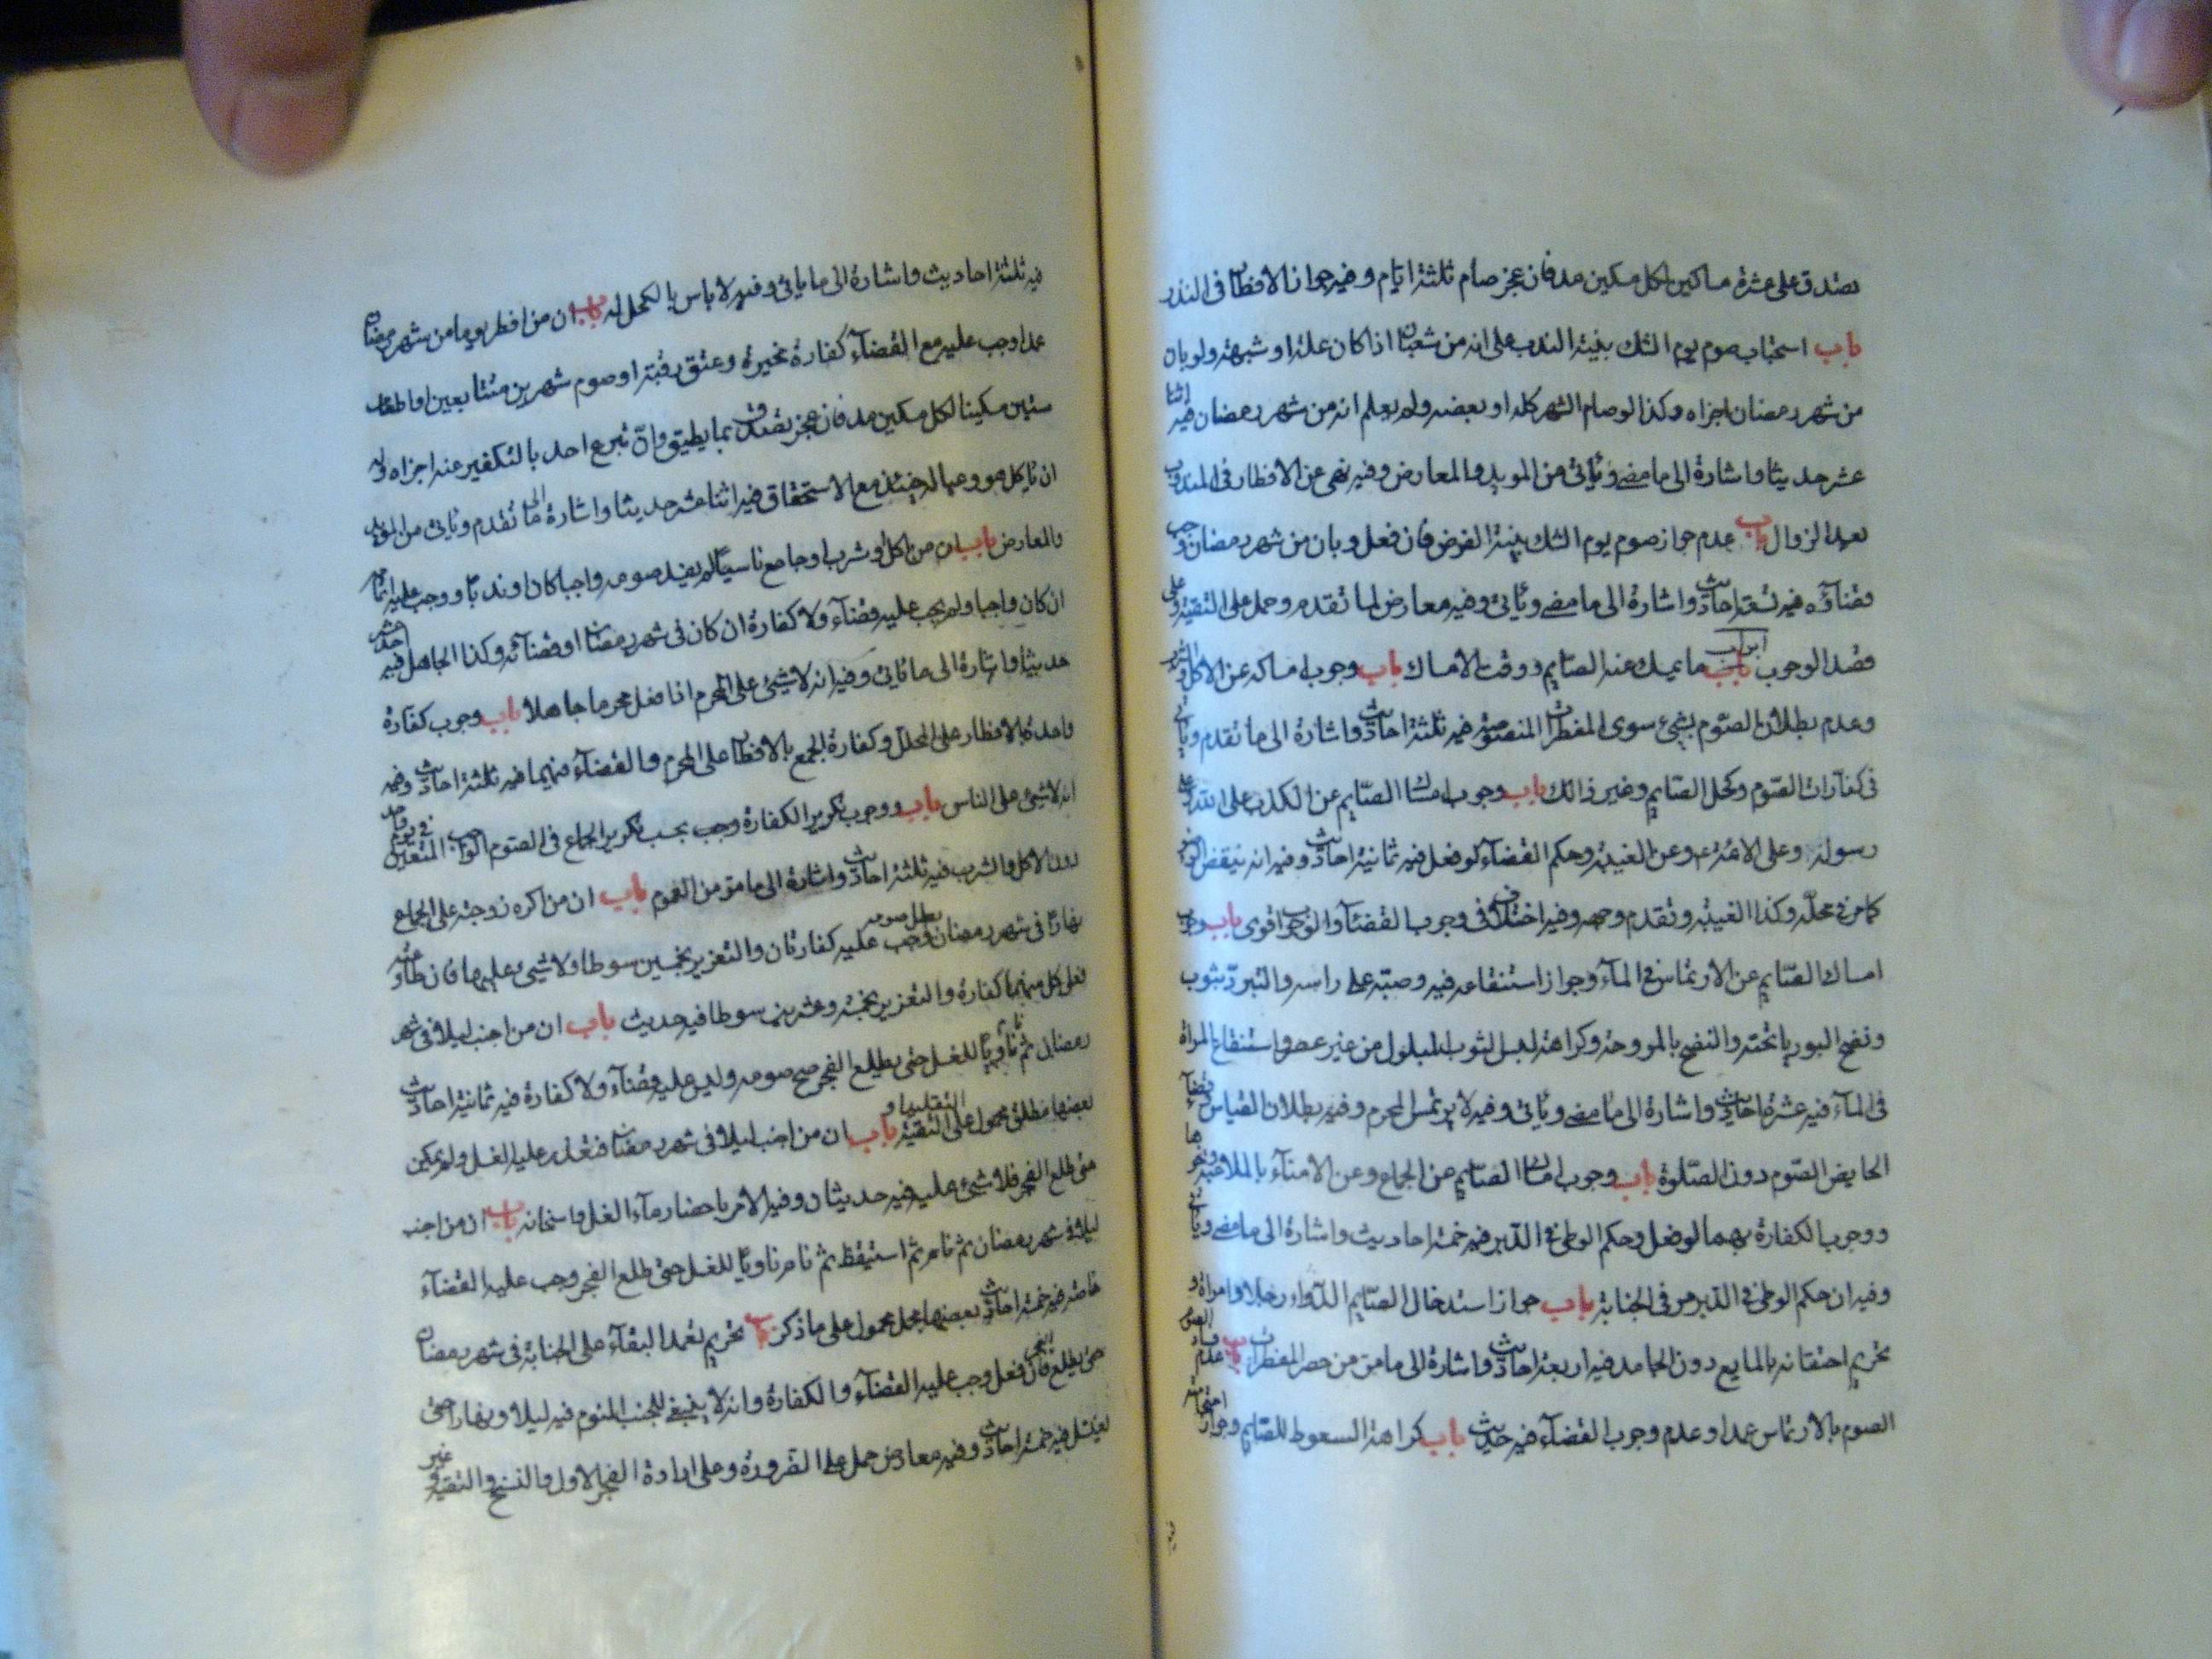 تصدق على عشرة مساكين لكل مسكين مد فان عجز صام ثلثة ايام وفيه جواز الافطار فى النذر
باب استحباب صوم يوم الشك بنية الندب على انه من شعبان اذا كان علة او شبهة ولو بان
من شهر رمضان اجزاه وكذا لو صام الشهر كله او بعضه ولم يعلم انه من شهر رمضان فيه اثنا
عشر حديثا واشارة الى ما مضى وياتى من المويد والمعارض وفيه نهى عن الافطار فى المندوب
بعد الزوال باب عدم جواز صوم يوم الشك بنية الفرض فان فعل وبان من شهر رمضان وجب
قضاؤه فيه تسعة احاديث واشارة الى ما مضى وياتى وفيه معارض لما تقدم وحمل على التقية وعلى
قصد الوجوب ابواب ما يمسك عنه الصايم ووقت الامساك باب وجوب امساكه عن الاكل والشرب
وعدم بطلان الصوم بشئ سوى المفطرات المنصوصة فيه ثلثة احاديث واشارة الى ما تقدم وياتى
فى كفارات الصوم وكحل الصايم وغير ذالك باب وجوب امساك الصايم عن الكذب على الله وعلى
رسوله وعلى الائمة ع وعن الغيبة وحكم القضاء لو فعل فيه ثمانية احاديث وفيه انه ينقض الوضوء
كما مر فى محله وكذا الغيبة وتقدم وجهه وفيه اختلاف فى وجوب القضاء والوجوب اقوى باب وجوب
امساك الصايم عن الارتماس فى الماء وجواز استنقاعه فيه وصبه على راسه والتبرد بثوب
ونضح البوريا تحته والنضح بالمروحة وكراهة لبس الثوب المبلول من غير عصر واستنقاع المراة
فى الماء فيه عشرة احاديث واشارة الى ما مضى وياتى وفيه لا يرتمس المحرم وفيه بطلان القياس قضاء
الحايض الصوم دون الصلوة باب وجوب امساك الصايم عن الجماع وعن الامناء بالملاعبة ونحوها
ووجوب الكفارة بهما لو فعل وحكم الوطى فى الدبر فيه خمسة احاديث واشارة الى ما مضى وياتى
وفيه ان حكم الوطى فى الدبر مر فى الجنابة باب جواز استدخال الصايم الدواء رجلا وامراة و
تحريم احتقانه بالمايع دون الجامد فيه اربعة احاديث واشارة الى ما مر من حصر المفطرات باب عدم فساد
الصوم بالارتماس عمدا وعدم وجوب القضاء فيه حديث باب كراهة السعوط للصايم وجواز
فيه ثلثة احاديث واشارة الى ما ياتى وفيه لا باس بالكحل له باب ان من افطر يوما من شهر رمضان
عمدا وجب عليه مع القضاء كفارة مخيرة وعتق رقبة او صوم شهرين متتابعين او اطعام
ستين مسكينا لكل مسكين مد فان عجز تصدق بما يطيق وان تبرع احد بالتكفير عنه اجزاه وله
ان ياكل هو وعياله حينئذ مع الاستحقاق فيه اثنا عشر حديثا واشارة الى ما تقدم وياتى من المويد
والمعارض باب ان من اكل او شرب او جامع ناسيا لم يفسد صومه واجبا كان او ندبا ووجب عليه اتمامه
ان كان واجبا ولم يجب عليه قضاء ولا كفارة ان كان فى شهر رمضان او قضائه وكذا الجاهل فيه احد عشر
حديثا واشارة الى ما ياتى وفيه انه لا شيئ على المحرم اذا فعل محرما جاهلا باب وجوب كفارة
واحدة بالافطار على المحلل وكفارة الجمع بالافطار على المحرم والقضاء فيهما فيه ثلثة احاديث وفيه
انه لا شيئ على الناس باب ووجوب تكرير الكفارة وجب بحسب تكرير الجماع فى الصوم الواجب المتعين فى يوم واحد
دون الاكل والشرب فيه ثلثة احاديث واشارة الى ما مر من العموم باب ان من اكره زوجته على الجماع
نهارا فى شهر رمضان بطل صومه وجب عليه كفارتان والتعزير بخمسين سوطا ولا شيئ عليها فان طاوعته
فعلى كل منهما كفارة والتعزير بخمسة وعشرين سوطا فيه حديث باب ان من اجنب ليلا فى شهر
رمضان ثم نام ناويا للغسل حتى يطلع الفجر صح صومه وليس عليه قضاء ولا كفارة فيه ثمانية احاديث
بعضها مطلق محمول على التقية باب ان من اجنب ليلا فى شهر رمضان فتعذر عليه الغسل ولم يمكن
حتى طلع الفجر فلا شيئ عليه فيه حديثان وفيه الامر باحضار ماء الغسل واسخانه باب ان من اجنب
ليلا فى شهر رمضان ثم نام ثم استيقظ ثم نام ناويا للغسل حتى طلع الفجر وجب عليه القضاء
خاصة فيه خمسة احاديث بعضها مجمل محمول على ما ذكر باب تحريم تعمد البقاء على الجنابة فى شهر رمضان
حتى يطلع الفجر فان فعل وجب عليه القضاء والكفارة وانه لا ينبغى للجنب النوم فيه ليلا ونهارا حتى
يغتسل فيه خمسة احاديث وفيه معارض حمل على الضرورة وعلى ارادة الفجر الاول والنسخ والتقية وغير